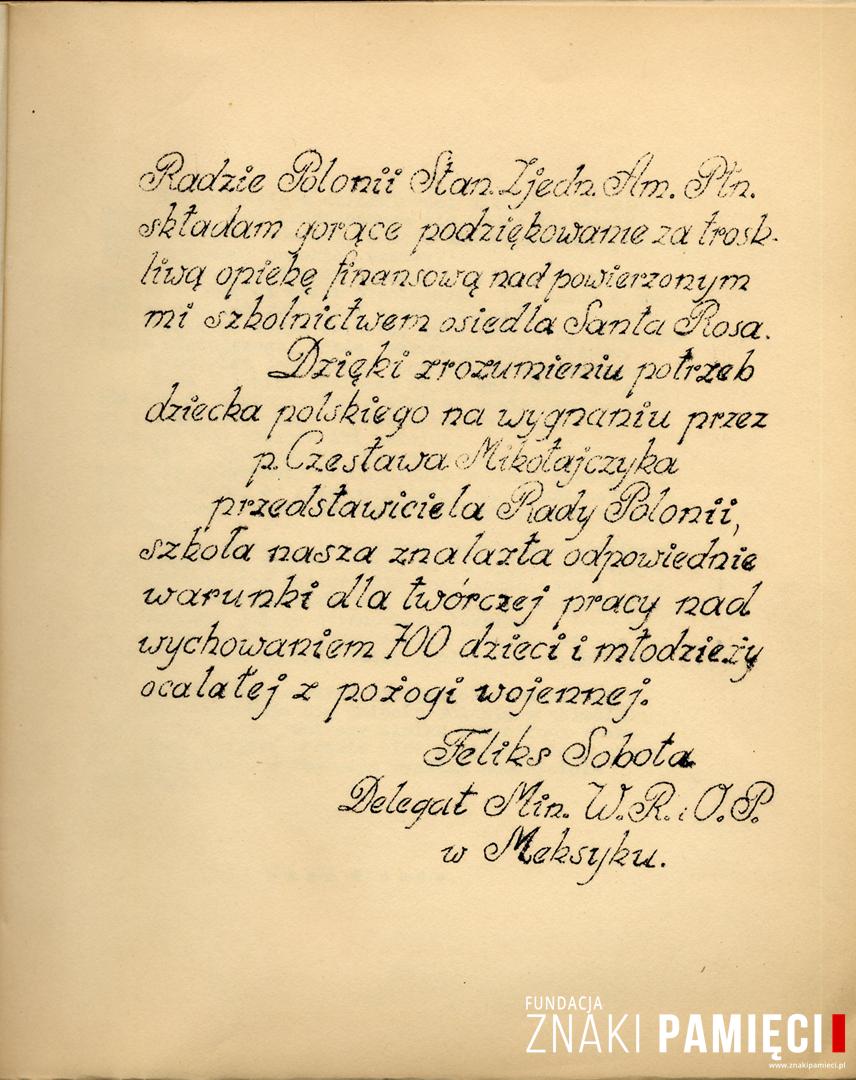 Radzie Polonii Stan. Zjedn. Am. Płn.
składam gorące podziękowanie za trosk-
liwą opiekę finansową nad powierzonym
mi szkolnictwem osiedla Santa Rosa.
Dzięki zrozumieniu potrzeb
dziecka polskiego na wygnaniu przez
p. Czesława Mikołajczyka
przedstawiciela Rady Polonii,
szkoła nasza znalazła odpowiednie
warunki dla twórczej pracy nad
wychowaniem 700 dzieci i młodzieży
ocalałej z pożogi wojennej.
Feliks Sobota
Delegat Min. W. R. i O. P.
w Meksyku.
FUNDACJA
ZNAKI PAMIĘCI
www.znakipamieci.pl